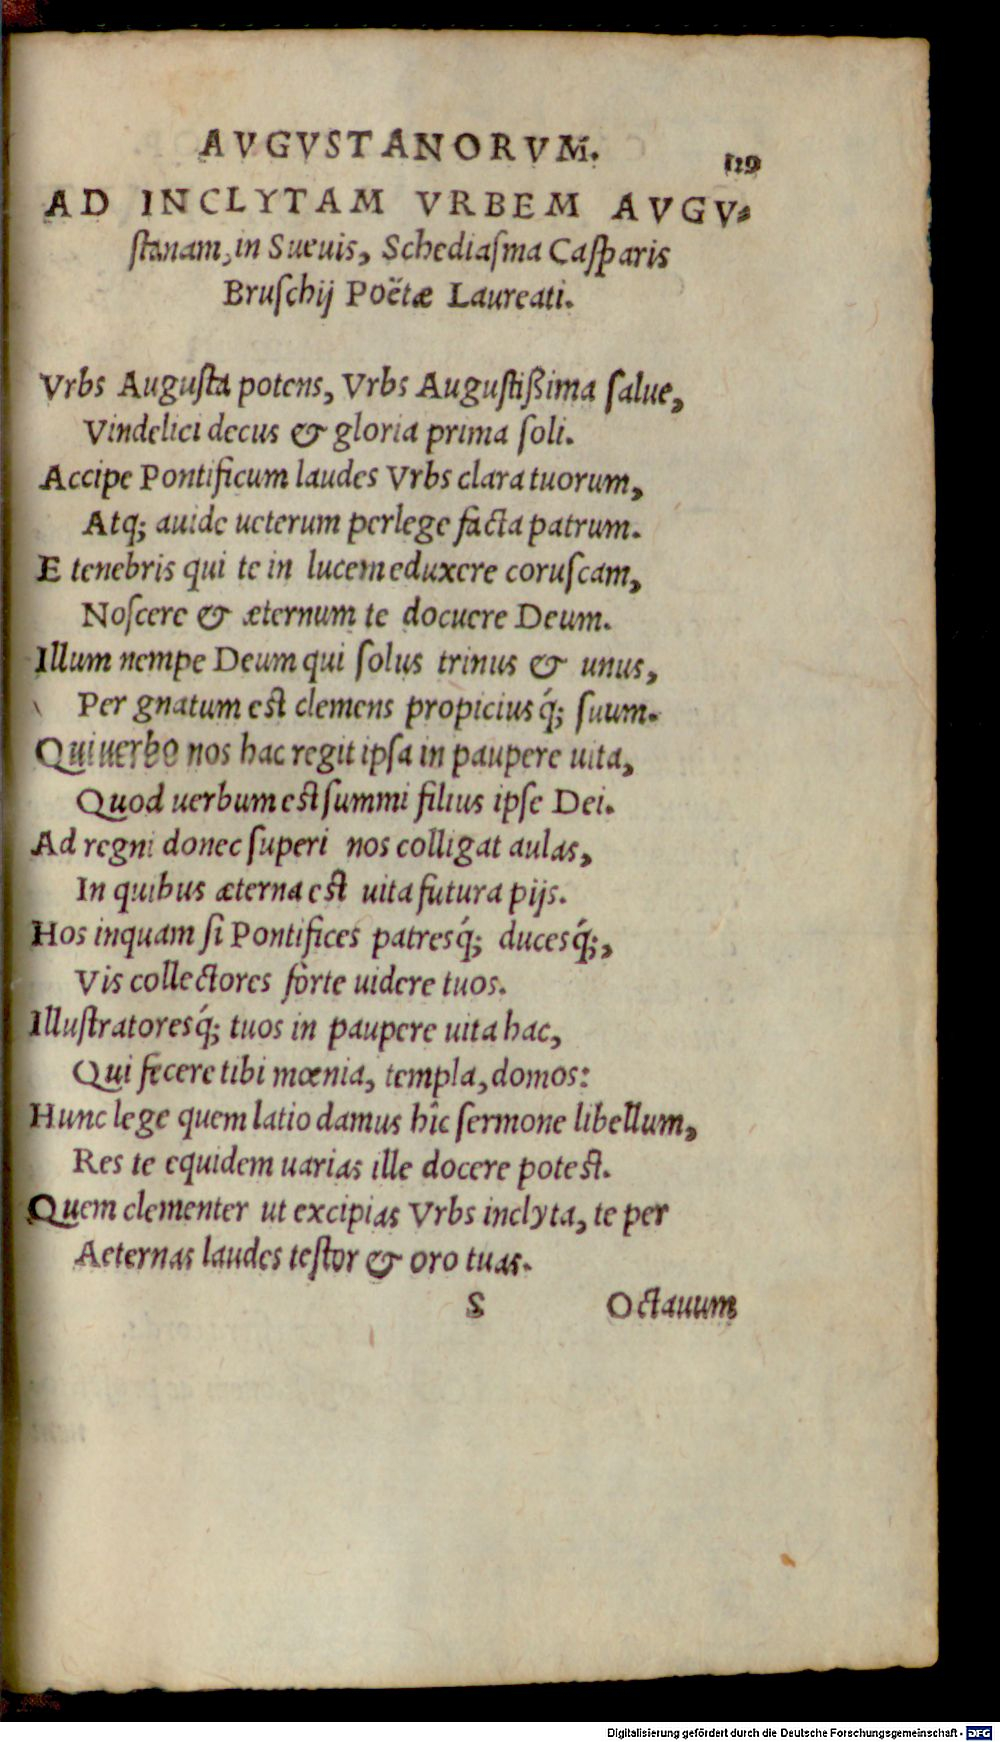 AVGVSTANORVM.
129
AD INCLYTAM VRBEM AVGV⸗
ſtanam, in Sueuis, Schediaſma Caſparis
Bruſchij Poëtæ Laureati.
Vrbs Auguſta potens, Vrbs Auguſtißima ſalue,
Vindelici decus & gloria prima ſoli.
Accipe Pontificum laudes Vrbs clara tuorum,
Atq; auide ueterum perlege facta patrum.
E tenebris qui te in lucem eduxere coruſcam,
Noſcere & æternum te docuere Deum.
Illum nempe Deum qui ſolus trinus & unus,
Per gnatum est clemens propicius q́; ſuum.
Qui uerbo nos hac regit ipſa in paupere uita,
Quod uerbum est ſummi filius ipſe Dei.
Ad regni donec ſuperi nos colligat aulas,
In quibus æterna est uita futura pijs.
Hos inquam ſi Pontifices patresq́; ducesq́;,
Vis collectores fòrte uidere tuos.
Illuſtratoresq́; tuos in paupere uita hac,
Qui fecere tibi mœnia, templa, domos:
Hunc lege quem latio damus hîc ſermone libellum,
Res te equidem uarias ille docere potest.
Quem clementer ut excipias Vrbs inclyta, te per
Aeternas laudes teſtor & oro tuas.
S Octauum
Digitalisierung gefördert durch die Deutsche Forschungsgemeinschaft - DFG